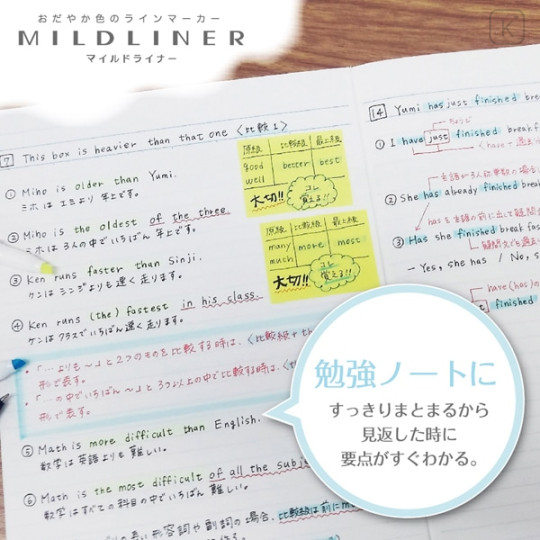 おだやか色のラインマーカー
MILDLINER
マイルドライナー
K
7 This box is heavier than that one〈比較1〉
① Miho is older than Yumi.
ミホはユミより年上です。
② Miho is the oldest of the three.
ミホは3人の中でいちばん年上です。
③ Ken runs faster than Sinji.
ケンはシンジよりも速く走ります。
④ Ken runs (the) fastest in his class.
ケンはクラスでいちばん速く走ります。
・「…よりも〜」と2つのものを比較する時は、〈比較級+th
形で表す。
・「…の中でいちばん〜」と3つ以上の中で比較する時は、〈th
形で表す。
⑤ Math is more difficult than English.
数学は英語よりも難しい。
⑥ Math is the most difficult of all the subj
数学はすべての科目の中でいちばん難しい。
の長い形容詞や副詞の場合、比較級は前にm
原級 比較級 最上級
good better best
well
大切!! コレ覚える!!
原級 比較級 最上級
many more most
much
大切!! コレ覚える!!
14 Yumi has just finished brea
① I have just finished breakf
② She has already finished break
③ Has she finished breakfas
- Yes, she has / No, s
have(has)の
finished
勉強ノートに
すっきりまとまるから
見返した時に
要点がすぐわかる。